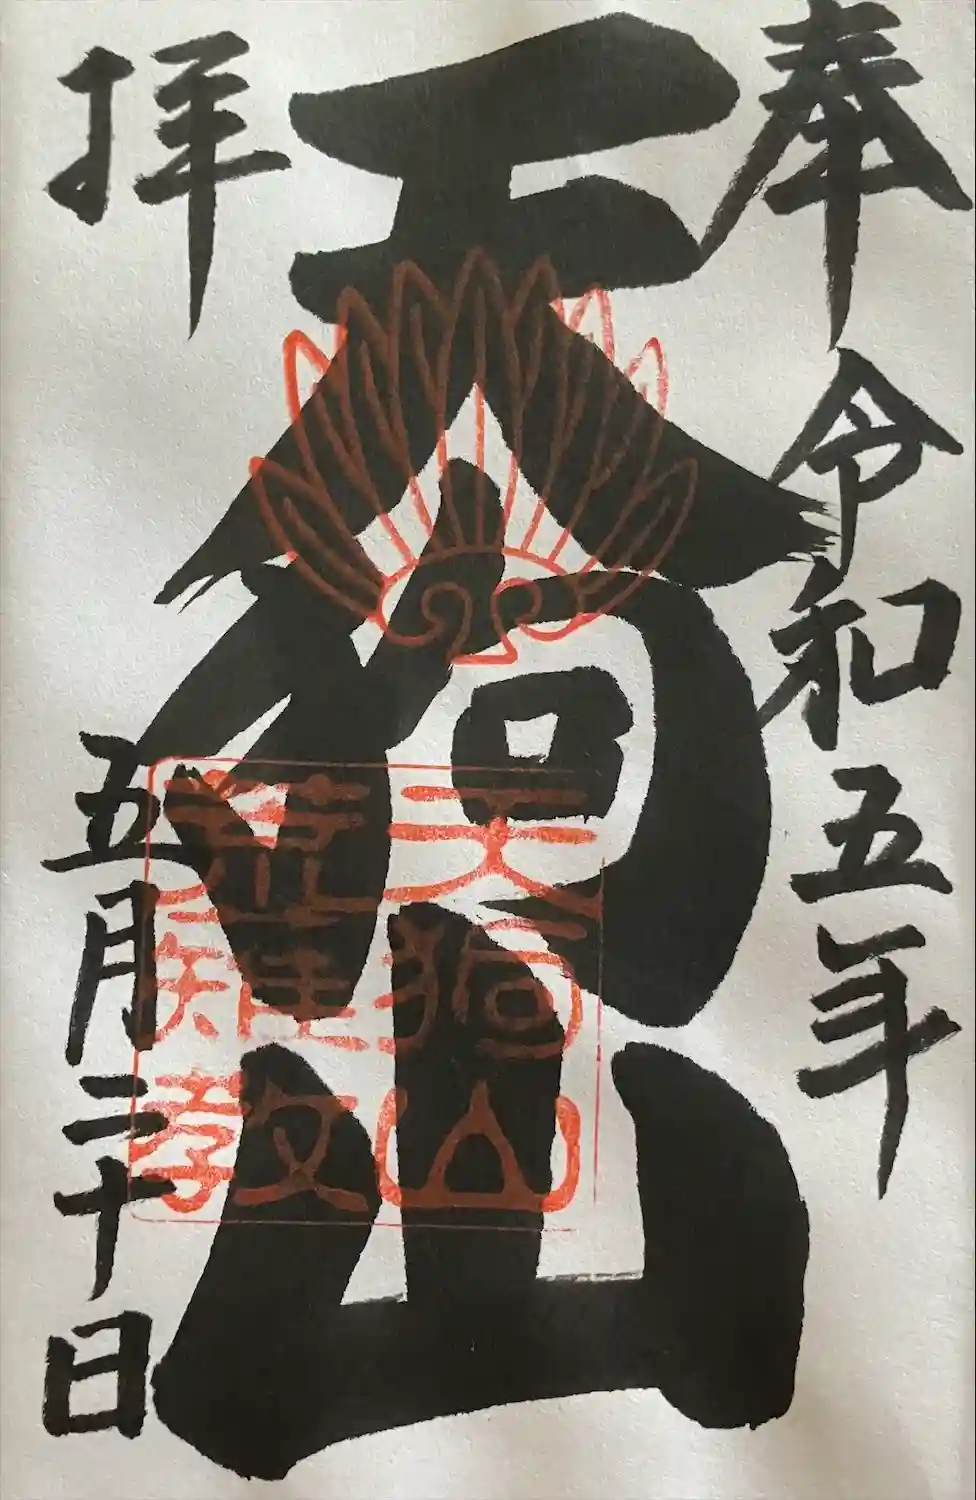 奉拝
令和五年
天狗山
五月二十日
天狗山
荒薙教